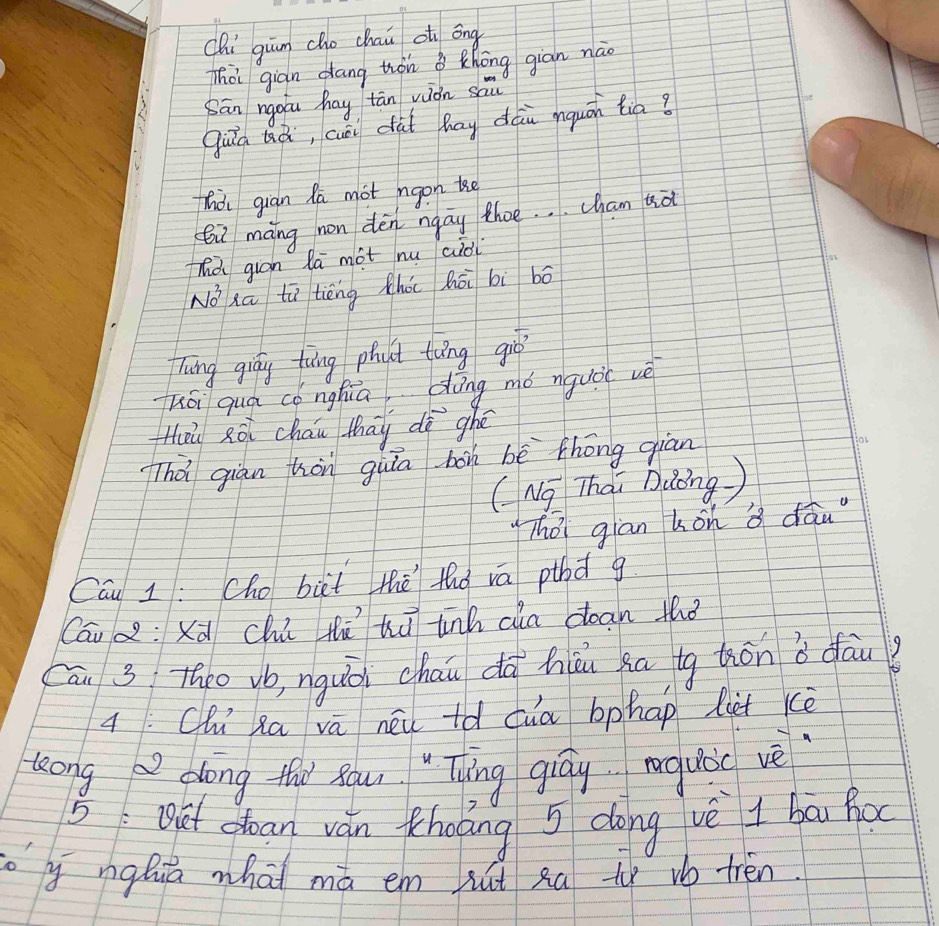 Chỉ giùm cho cháu đi ông
Thời gian đang trốn ở không gian nào
Sân ngoài hay tận vườn sau
Giữa trời, cuối đất hay đầu nguồn kia?
Thời gian là một ngọn tre
Từ măng non đến ngày khoe... chạm trời
Thời gian là một nụ cười
Nở ra từ tiếng khóc hồi bi bô
Từng giây từng phút từng giờ
Trôi qua có nghĩa... đừng mơ ngược về
Hiểu rồi cháu thấy dễ ghê
Thời gian trốn giữa bốn bề không gian
(Ng Thái Dương)
"Thời gian trốn ở đâu"
Câu 1: Cho biết thể thơ và ptbđ g
Câu 2: Xđ chủ thể trữ tình của đoạn thơ
Câu 3: Theo vb, người cháu đã hiểu ra tg trốn ở đâu?
4: Chỉ ra và nêu td của bpháp liệt kê
trong 2 dòng thơ sau. "Từng giây... ngược về"
5: Viết đoạn văn khoảng 5 dòng về 1 bài học
có ý nghĩa nhất mà em rút ra từ vb trên.